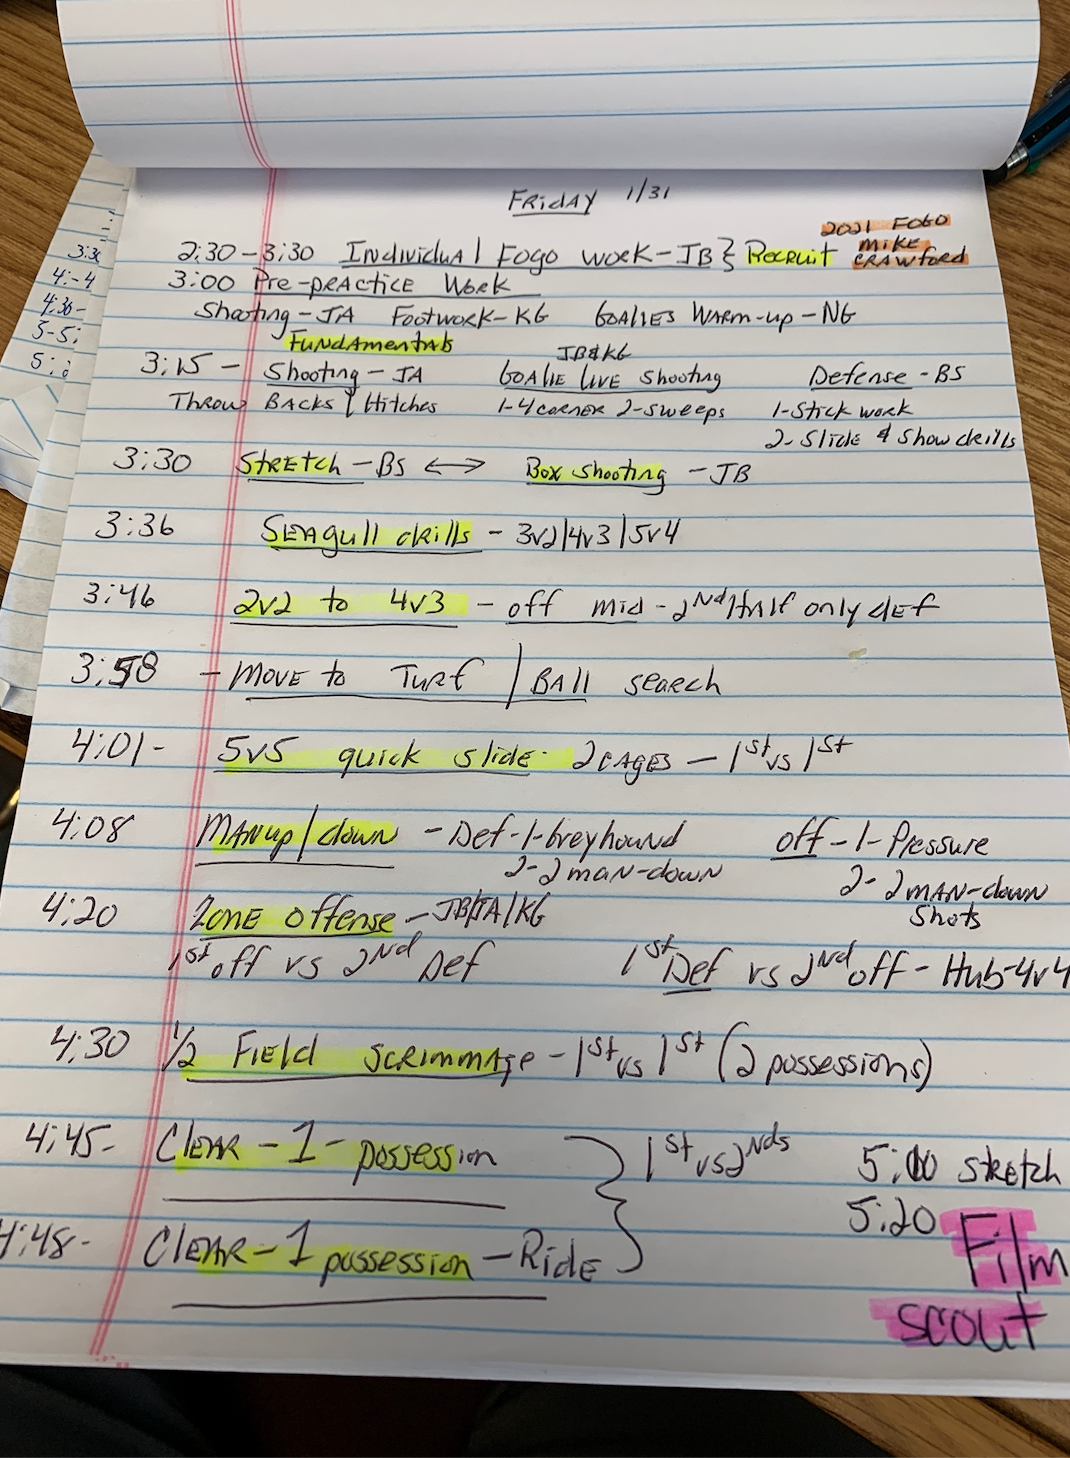 Friday 1/31
2021 FOGO
MIKE
CRAWford
2:30-3:30 Individual Fogo work-JB} Recruit
3:00 Pre-practice Work
Shooting-JA Footwork-KG Goalies Warm-up-NG
Fundamentals
JB&KG
3:15 - Shooting-JA Goalie Live Shooting Defense-BS
Throw Backs / Hitches 1-4 corner 2-sweeps 1-Stick work
2-Slide & Show drills
3:30 Stretch-BS <-> Box Shooting -JB
3:36 Seagull drills - 3v2|4v3|5v4
3:46 2v2 to 4v3 - off mid-2nd Half only def
3:58 - Move to Turf / Ball search
4:01- 5v5 quick slide- 2 cages - 1st vs 1st
4:08 Man up/down -Def-1-Greyhound off-1-Pressure
2-2 man-down 2-2 man-down
Shots
4:20 Zone offense-JB/JA/KG
1st off vs 2nd Def 1st Def vs 2nd off-Hub-4v4
4:30 1/2 Field scrimmage-1st vs 1st (2 possessions)
4:45- Clear-1-possession } 1st vs 2nds
4:48- Clear-1 possession-Ride
5:00 stretch
5:20 Film
scout
3:3
4:-4
4:30-
5-5:
5: